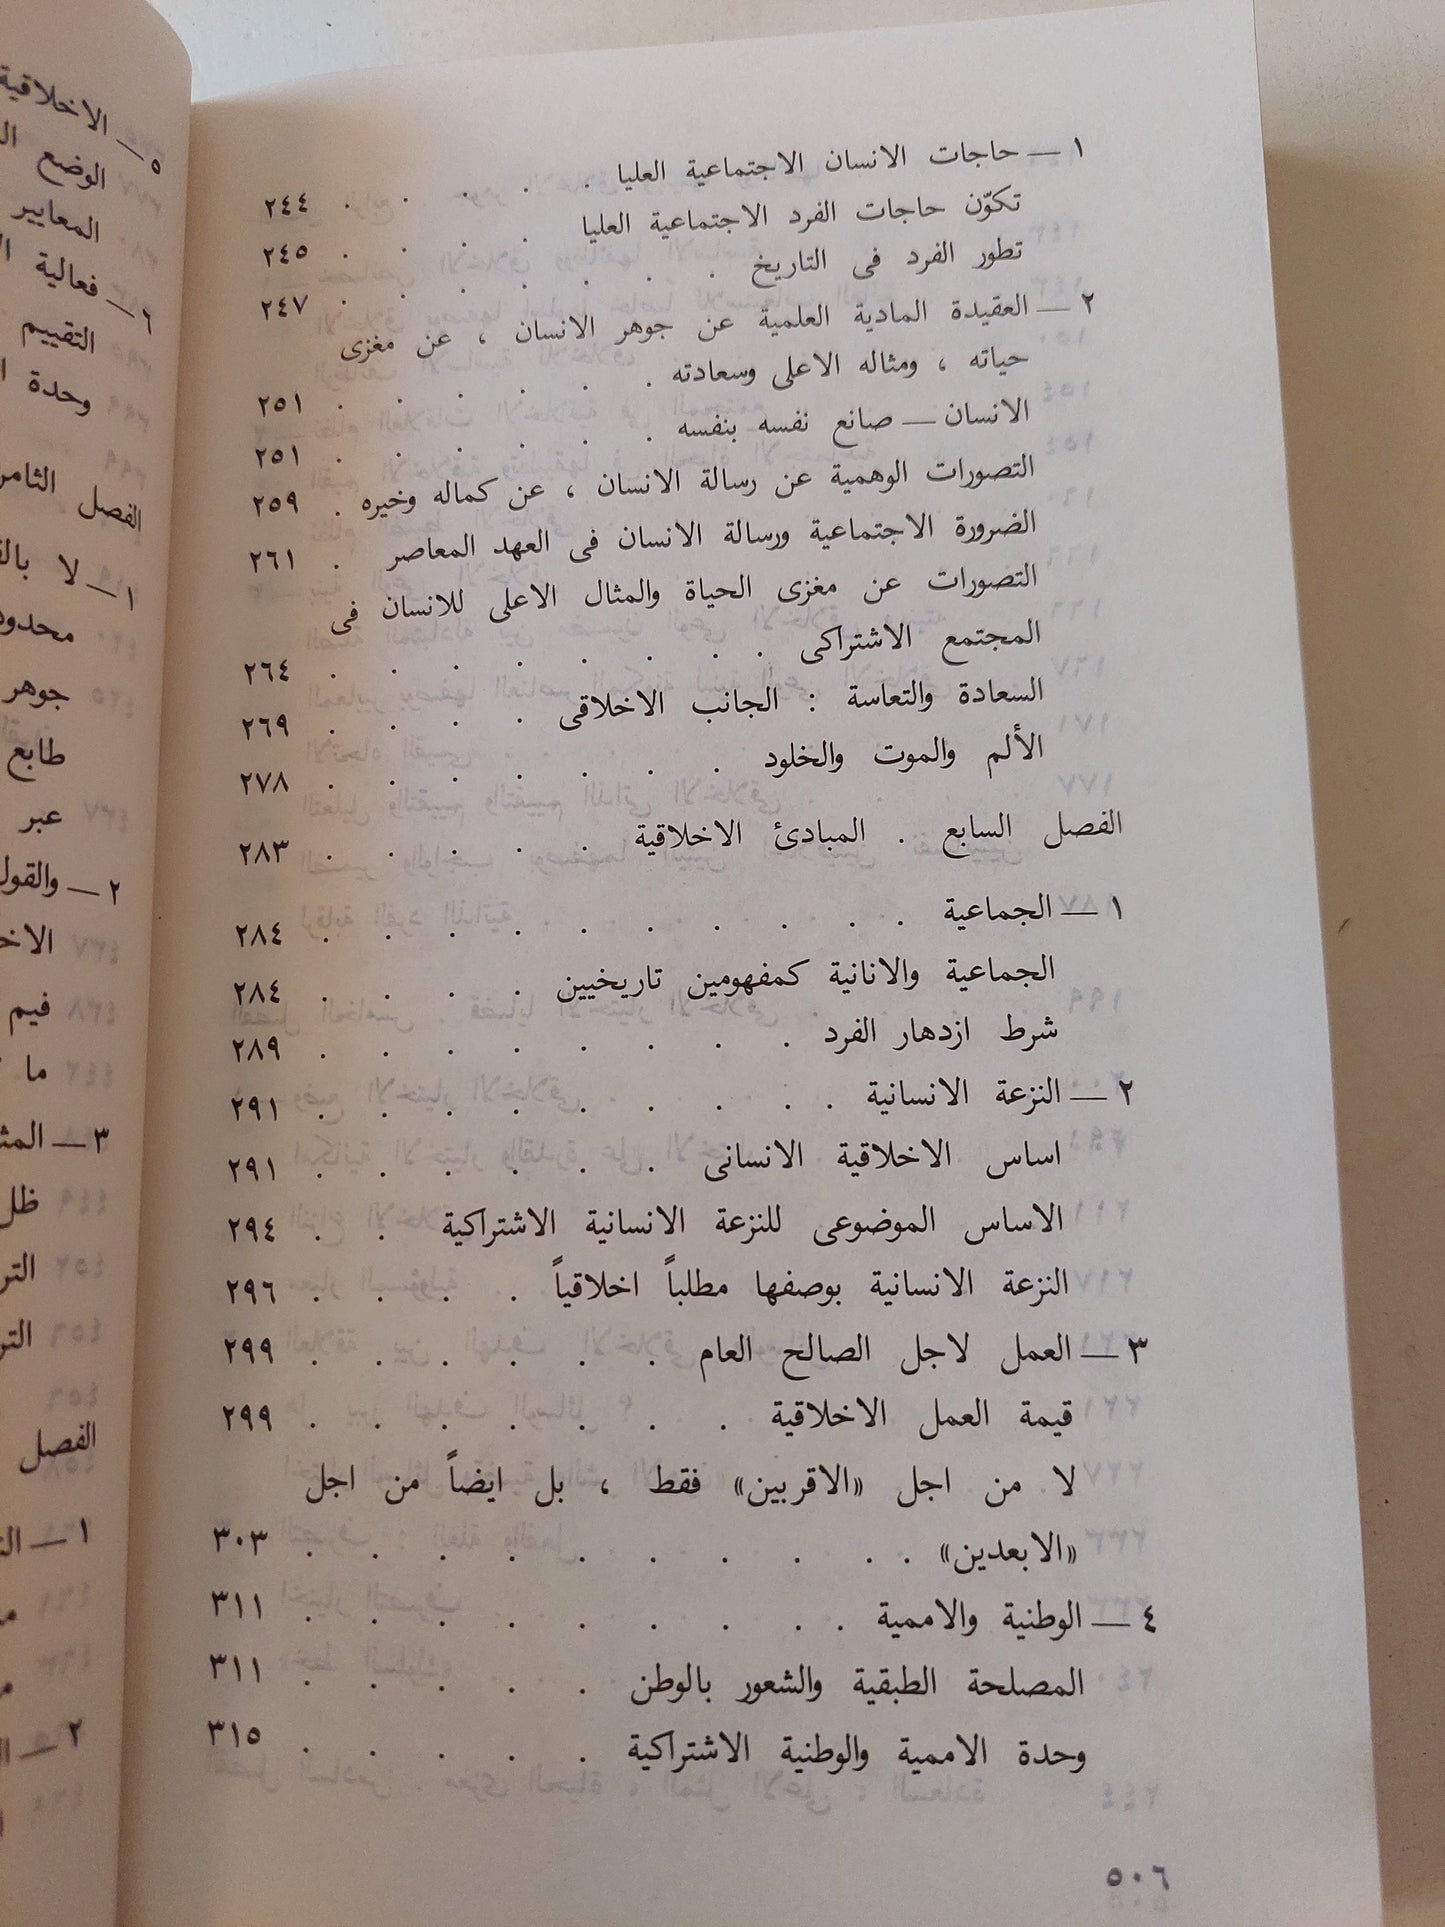 ١ — حاجات الانسان الاجتماعية العليا . . . . . ٢٤٤
تكوّن حاجات الفرد الاجتماعية العليا . . . . . ٢٤٥
تطور الفرد فى التاريخ . . . . . . ٢٤٧
٢ — العقيدة المادية العلمية عن جوهر الانسان ، عن مغزى
حياته ، ومثاله الاعلى وسعادته . . . . . . ٢٥١
الانسان — صانع نفسه بنفسه . . . . . . ٢٥١
التصورات الوهمية عن رسالة الانسان ، عن كماله وخيره . ٢٥٩
الضرورة الاجتماعية ورسالة الانسان فى العهد المعاصر . ٢٦١
التصورات عن مغزى الحياة والمثال الاعلى للانسان فى
المجتمع الاشتراكى . . . . . . . . ٢٦٤
السعادة والتعاسة : الجانب الاخلاقى . . . . ٢٦٩
الألم والموت والخلود . . . . . . . ٢٧٨
الفصل السابع . المبادئ الاخلاقية . . . . . ٢٨٣
١ — الجماعية . . . . . . . . . . ٢٨٤
الجماعية والانانية كمفهومين تاريخيين . . . . ٢٨٤
شرط ازدهار الفرد . . . . . . . . ٢٨٩
٢ — النزعة الانسانية . . . . . . . . . ٢٩١
اساس الاخلاقية الانسانى . . . . . . ٢٩١
الاساس الموضوعى للنزعة الانسانية الاشتراكية . . ٢٩٤
النزعة الانسانية بوصفها مطلباً اخلاقياً . . . . ٢٩٦
٣ — العمل لاجل الصالح العام . . . . . . ٢٩٩
قيمة العمل الاخلاقية . . . . . . . ٢٩٩
لا من اجل «الاقربين» فقط ، بل ايضاً من اجل
«الابعدين» . . . . . . . . . . ٣٠٣
٤ — الوطنية والاممية . . . . . . . . . ٣١١
المصلحة الطبقية والشعور بالوطن . . . . . ٣١١
وحدة الاممية والوطنية الاشتراكية . . . . . ٣١٥
٥٠٦
٥ — الاخلاقية
الوضع
المعايير
٦ — فعالية
التقييم
وحدة
الفصل
١ — لا
جوهر
طابع
عبر
٢ — والقول
فيم
ما
٣ —
الفصل
١ —
٢ —